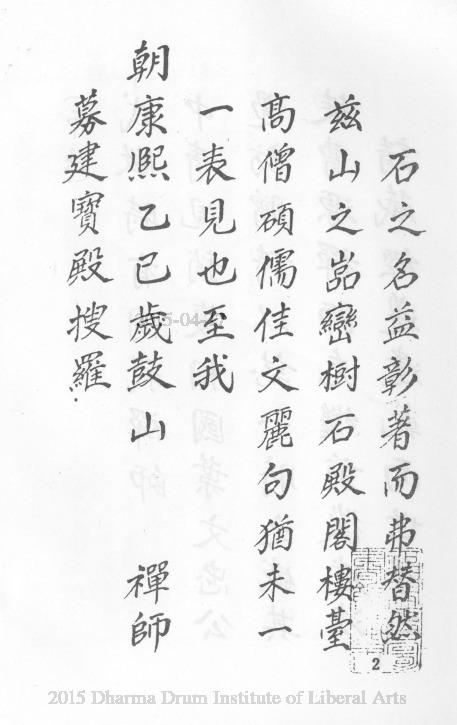 石之名益彰著而弗替然
茲山之嵓巒樹石殿閣樓臺
高僧碩儒佳文麗句猶未一
一表見也至我
朝康熙乙巳歲鼓山 禪師
募建寶殿搜羅
2
2015 Dharma Drum Institute of Liberal Arts